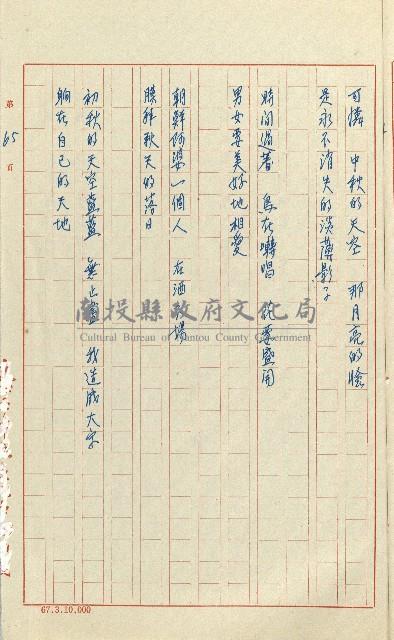 可憐 中秋的天空 那月亮的臉
是永不消失的淡薄影子
時間過著 鳥在囀唱 花要盛開
男女要美好地相愛
朝鮮阿婆一個人 在酒場
膜拜秋天的落日
初秋的天空蒼藍 無止盡 我造成大字
躺在自己的天地
第 65 頁
南投縣政府文化局
Cultural Bureau of Nantou County Government
67.3.10,000